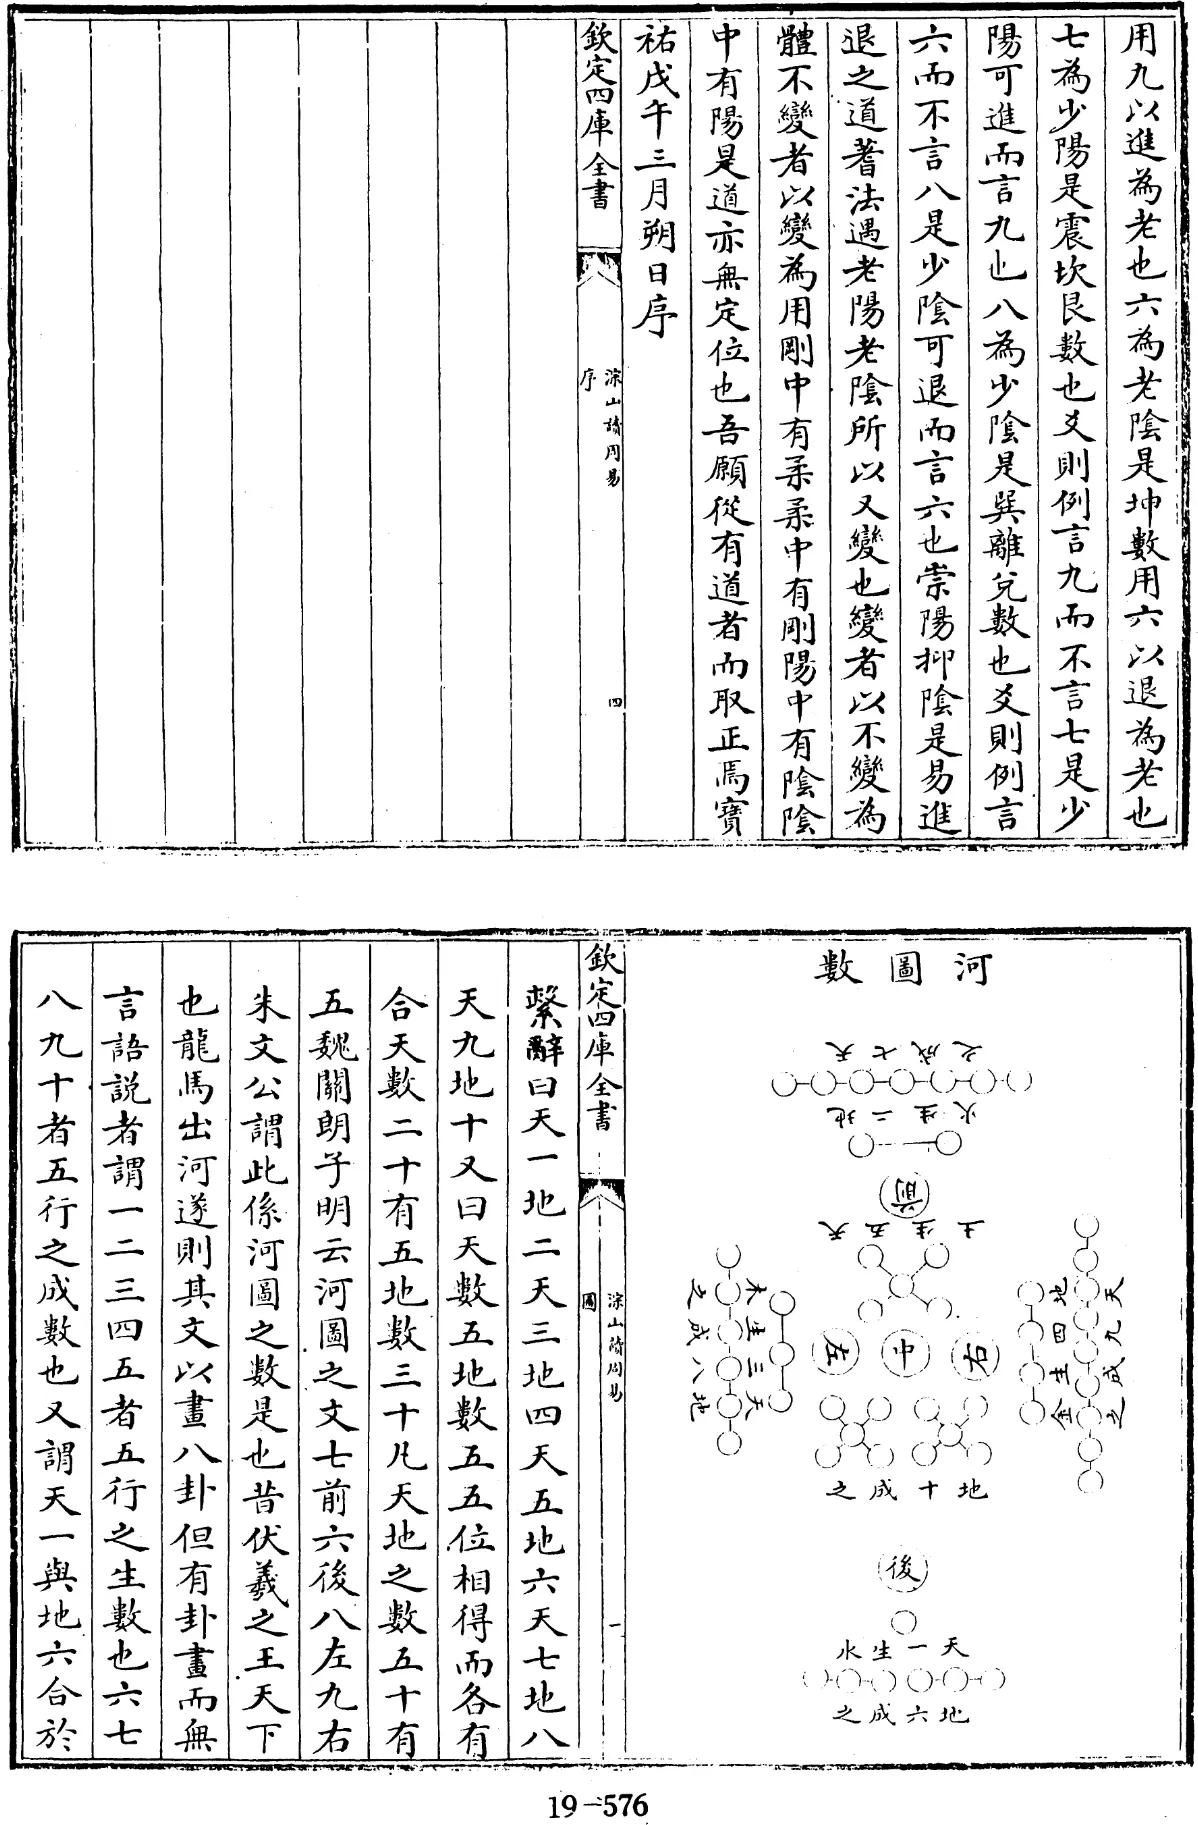 用九以進為老也六為老陰是坤數用六以退為老也
七為少陽是震坎艮數也爻則例言九而不言七是少
陽可進而言九也八為少陰是巽離兌數也爻則例言
六而不言八是少陰可退而言六也崇陽抑陰是易進
退之道蓍法遇老陽老陰所以又變也變者以不變為
體不變者以變為用剛中有柔柔中有剛陽中有陰陰
中有陽是道亦無定位也吾願從有道者而取正焉寶
祐戊午三月朔日序
欽定四庫全書
淙山讀周易
序
四
河圖數
天七成之
地二生火
前
天五生土
地四生金
天九成之
右
中
左
天三生木
地八成之
地十成之
後
天一生水
地六成之
欽定四庫全書
淙山讀周易
圖
一
繫辭曰天一地二天三地四天五地六天七地八
天九地十又曰天數五地數五五位相得而各有
合天數二十有五地數三十凡天地之數五十有
五魏關朗子明云河圖之文七前六後八左九右
朱文公謂此係河圖之數是也昔伏羲之王天下
也龍馬出河遂則其文以畫八卦但有卦畫而無
言語說者謂一二三四五者五行之生數也六七
八九十者五行之成數也又謂天一與地六合於
19-576